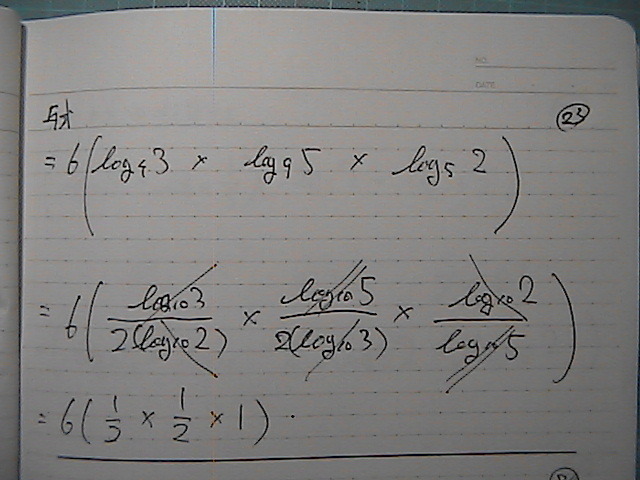 NO.
DATE
与式 ㉓
= 6(log₄3 × log₉5 × log₅2)
= 6(log₁₀3/2(log₁₀2) × log₁₀5/2(log₁₀3) × log₁₀2/log₁₀5)
= 6(1/3 × 1/2 × 1)